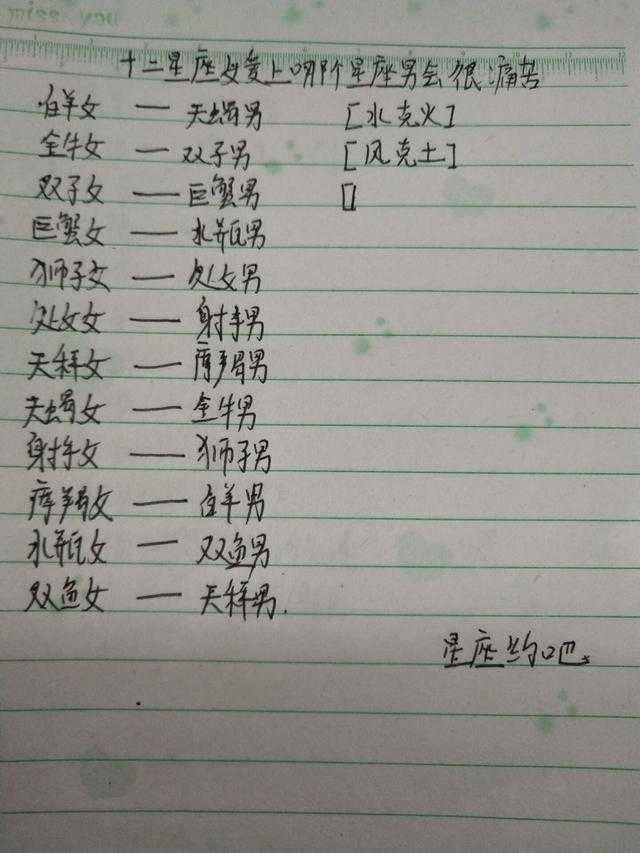 十二星座女爱上哪个星座男会很痛苦
白羊女 — 天蝎男 [水克火]
金牛女 — 双子男 [风克土]
双子女 — 巨蟹男 []
巨蟹女 — 水瓶男
狮子女 — 处女男
处女女 — 射手男
天秤女 — 摩羯男
天蝎女 — 金牛男
射手女 — 狮子男
摩羯女 — 白羊男
水瓶女 — 双鱼男
双鱼女 — 天秤男.
星座约吧.